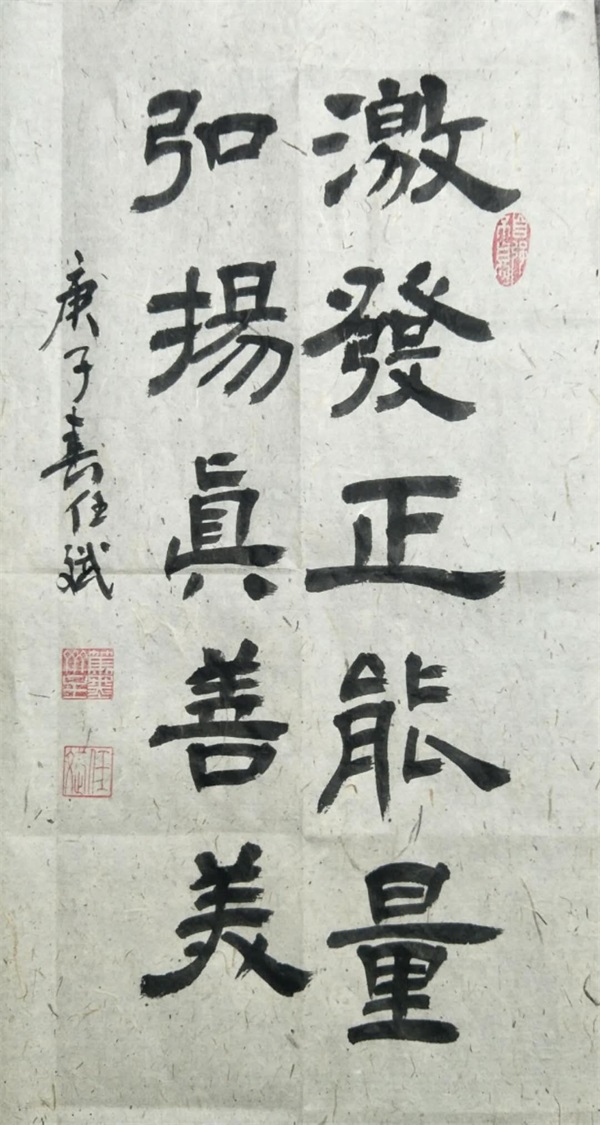 激發正能量
弘揚眞善美
庚子春任斌
任斌